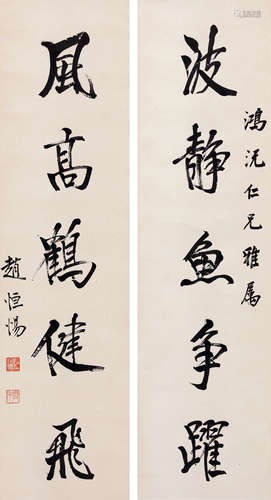 鴻沅仁兄雅属
波靜魚争躍
風高鶴健飛
趙恒惕